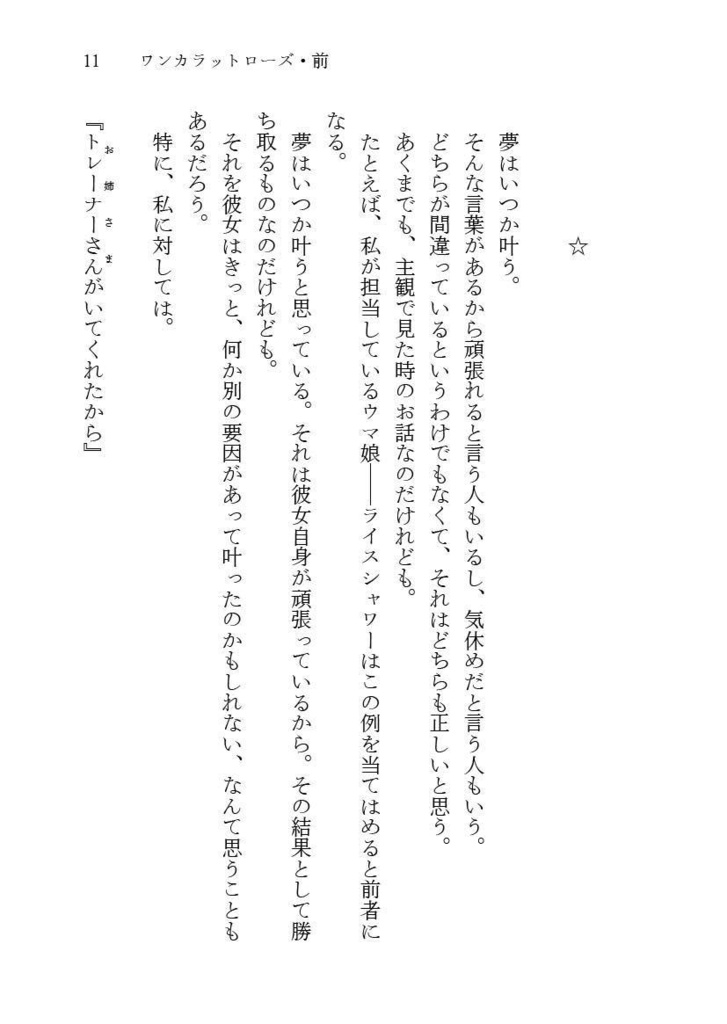 11　ワンカラットローズ・前
☆
夢はいつか叶う。
そんな言葉があるから頑張れると言う人もいるし、気休めだと言う人もいう。
どちらが間違っているというわけでもなくて、それはどちらも正しいと思う。
あくまでも、主観で見た時のお話なのだけれども。
たとえば、私が担当しているウマ娘――ライスシャワーはこの例を当てはめると前者に
なる。
夢はいつか叶うと思っている。それは彼女自身が頑張っているから。その結果として勝
ち取るものなのだけれども。
それを彼女はきっと、何か別の要因があって叶ったのかもしれない、なんて思うことも
あるだろう。
特に、私に対しては。
お姉さま
『トレーナーさんがいてくれたから』